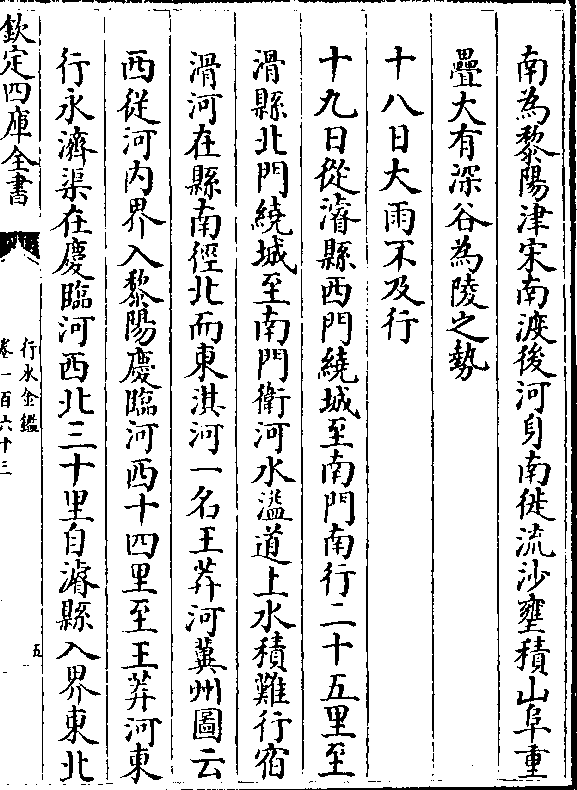 南為黎陽津宋南渡後河身南徙流沙壅積山阜重
疊大有深谷為陵之勢
十八日大雨不及行
十九日從濬縣西門繞城至南門南行二十五里至
滑縣北門繞城至南門衛河水溢道上水積難行宿
滑河在縣南徑北而東淇河一名王莽河冀州圖云
西從河内界入黎陽慶臨河西十四里至王莽河東
行永濟渠在慶臨河西北三十里自濬縣入界東北
欽定四庫全書
行水金鑑
卷一百六十三
五